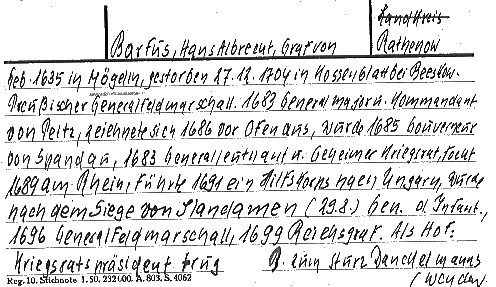 Landkreis
Barfus, Hans Albrecht, Graf von Rathenow
Geb. 1635 in Mögelin, gestorben 27.12.1704 in Kossenblatt bei Beeskow.
Preußischer Generalfeldmarschall. 1683 Generalmajor u. Kommandant
von Peitz, zeichnete sich 1686 vor Ofen aus, wurde 1685 Gouverneur
von Spandau, 1683 Generalleutnant u. Geheimer Kriegsrat, focht
1689 am Rhein, führte 1691 ein Hilfskorps nach Ungarn, wurde
nach dem Siege von Slankamen (29.8.) Gen. d. Infant.,
1696 Generalfeldmarschall, 1699 Reichsgraf. Als Hof:
Kriegsratspräsident trug B. zum Sturz Danckelmanns
(wenden)
Reg. 10. Stichnote 1. 50. 232000. A. 803, S. 4052